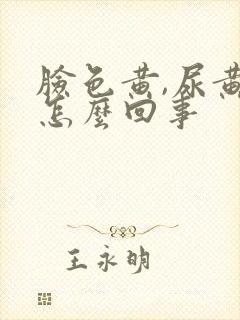 臉色黃,尿黃
怎麼回事
王永明